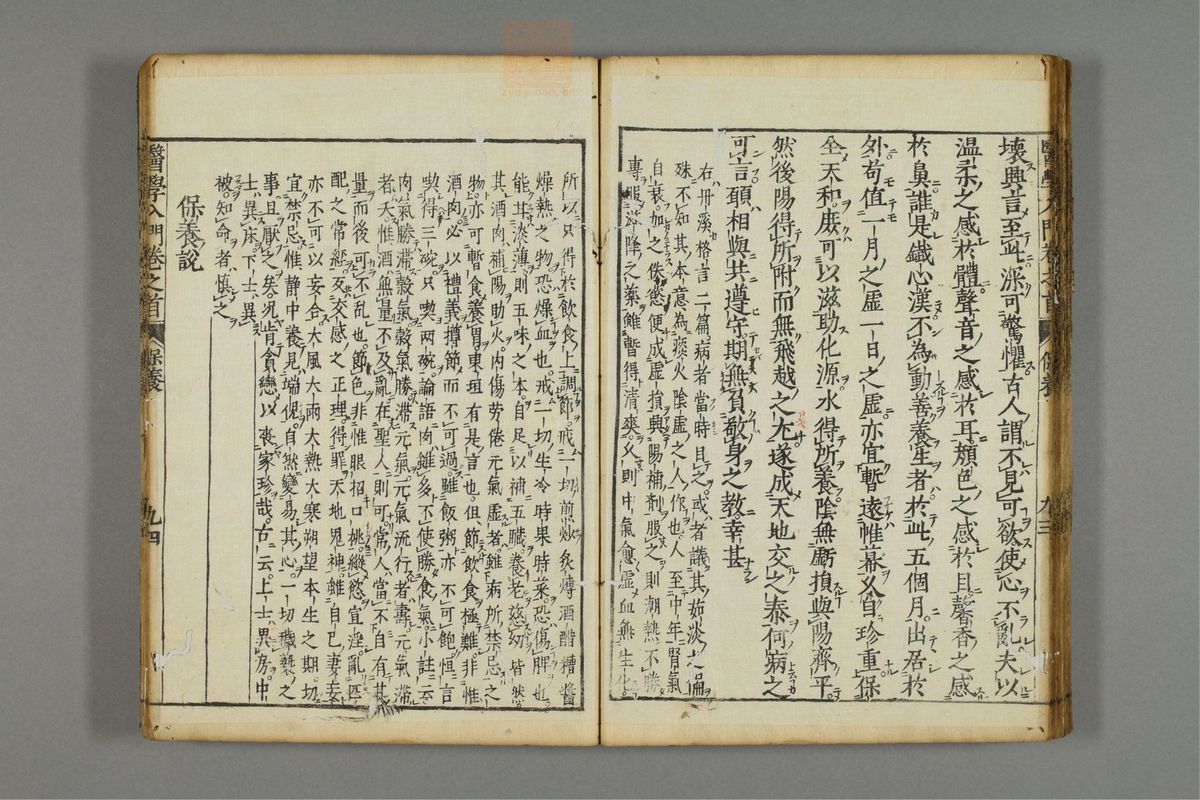 醫學入門卷之首
保養
九三
壞興言至此深可驚懼古人謂不見可欲使心不亂夫以
温柔之感於體聲音之感於耳顔色之感於目馨香之感
於鼻誰是鐵心漢不為動善養生者於此五個月出居於
外苟值一月之虛一日之虛亦宜暫遠帷幕各自珍重保
全天和庻可以滋助化源水得所養陰無虧損與陽齊平
然後陽得所附而無飛越之尤遂成天地交之泰何病之
可言頭相與共遵守期無負敬身之教幸甚
右丹溪格言二篇病者當時目之或者議其茹淡之論
殊不知其本意為痰火陰虛之人作也人至中年腎氣
自衰加之佚慾便成虛損與陽補剤服之則潮熱不勝
專服滋降之藥雖暫得清爽久則中氣愈虛血無生化
所以只得於飲食上調節戒一切煎炒炙煿酒醋糟醬
燥熱之物恐燥血也戒一切生冷時果時菜恐傷脾也
能甘淡薄則五味之本自足以補五臟養老慈幼皆然
其酒肉補陽助火内傷勞倦元氣虛者雖病所禁忌之
物亦可暫食養胃東垣有是言也但節飲食極難非惟
酒肉必以禮義撙節而不可過雖飯粥亦不可飽恒言
喫得三碗只喫兩碗論語肉雖多不使勝食氣小註云
肉氣勝滯穀氣穀氣勝滯元氣元氣流行者壽元氣滯
者夭惟酒無量不及亂在聖人則可常人當不自有其
量而後可不亂也節色非惟眼招口挑縱慾宜淫亂匹
配之常經反交感之正理得罪天地鬼神雖自已妻妾
亦不可以妄合大風大雨大熱大寒朔望本生之期切
宜禁忌惟静中養見端倪自然變易其心一切穢褻之
事且厭之矣况肯貪戀以喪家珍哉古云上士異房中
士異床下士異
被知命者慎之
保養說
醫學入門卷之首
保養
九四